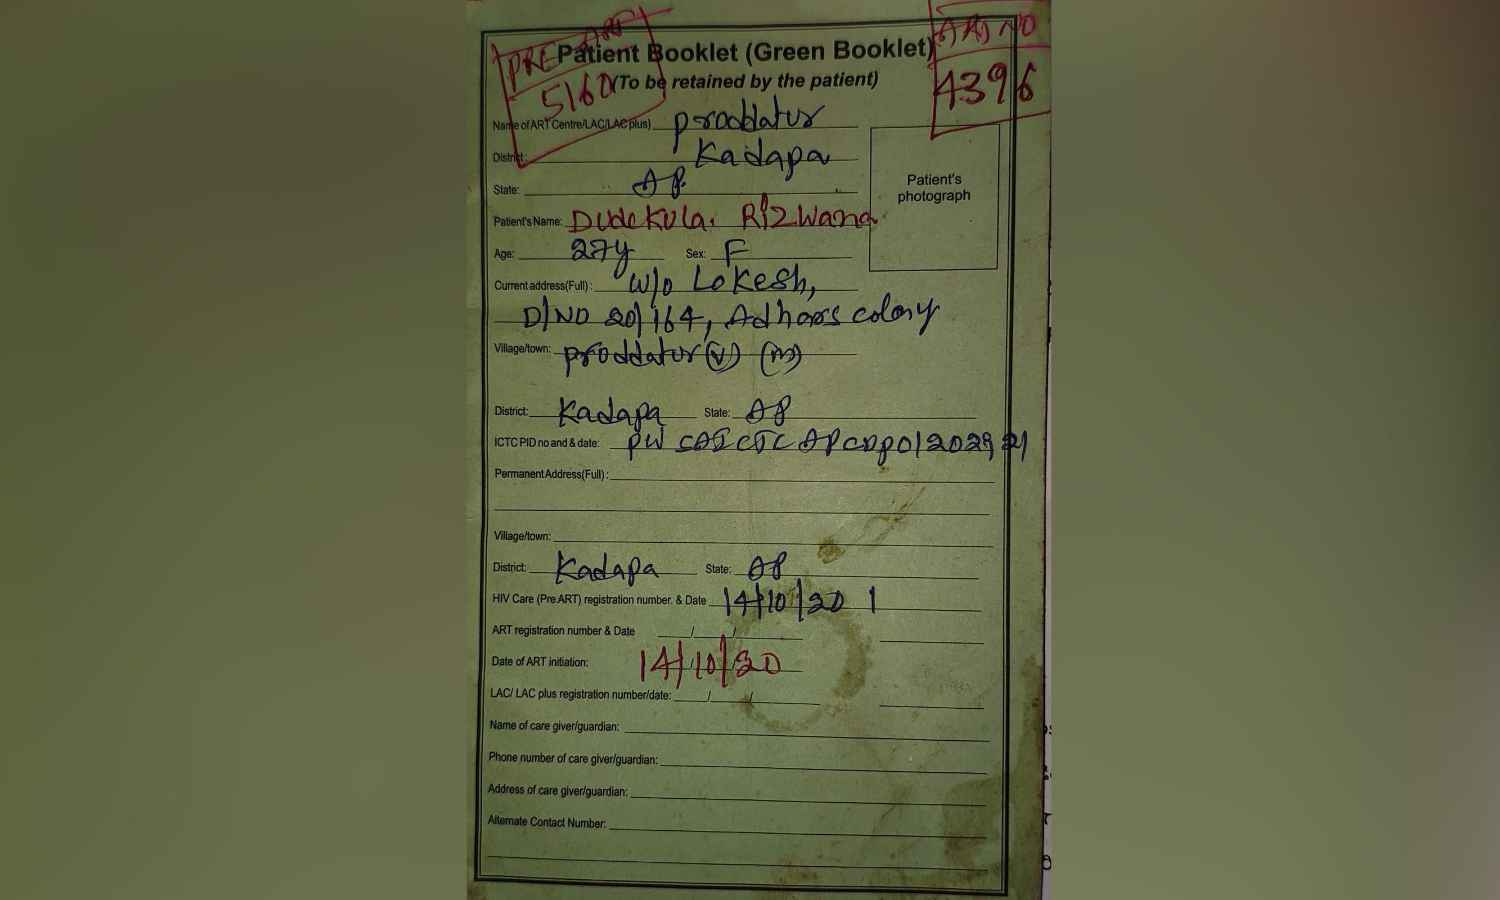 PRE ART
5160
ART NO
4396
Patient Booklet (Green Booklet)
(To be retained by the patient)
Name of ART Centre/LAC/LAC plus) proddatur
District: Kadapa
State: AP
Patient's photograph
Patient's Name: Dudekula. Rizwana
Age: 27y Sex: F
Current address(Full) : W/o Lokesh,
D/NO 20/164, Adhars colony
Village/town: proddatur (v) (m)
District: Kadapa State: AP
ICTC PID no and & date: PW
Permanent Address(Full) :
Village/town:
District: Kadapa State: AP
HIV Care (Pre ART) registration number. & Date 14/10/20
ART registration number & Date / /
Date of ART initiation: 14/10/20
LAC/ LAC plus registration number/date: / /
Name of care giver/guardian:
Phone number of care giver/guardian:
Address of care giver/guardian:
Alternate Contact Number: